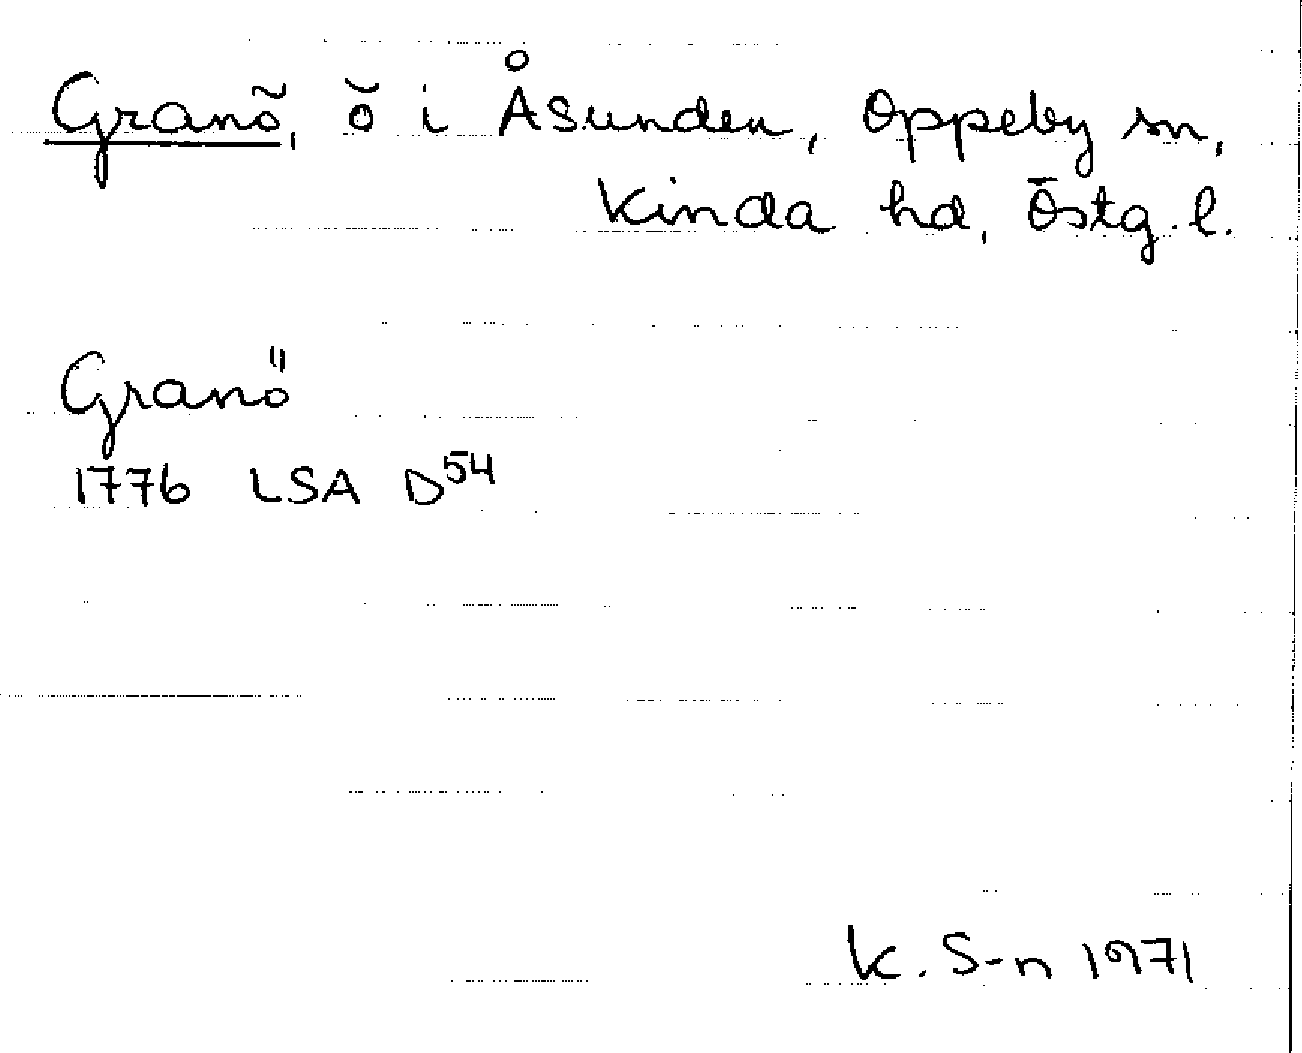 Granö, ö i Åsunden, Oppeby sn,
Kinda hd, Östg. l.
Granö
1776 LSA D54
K. S-n 1971